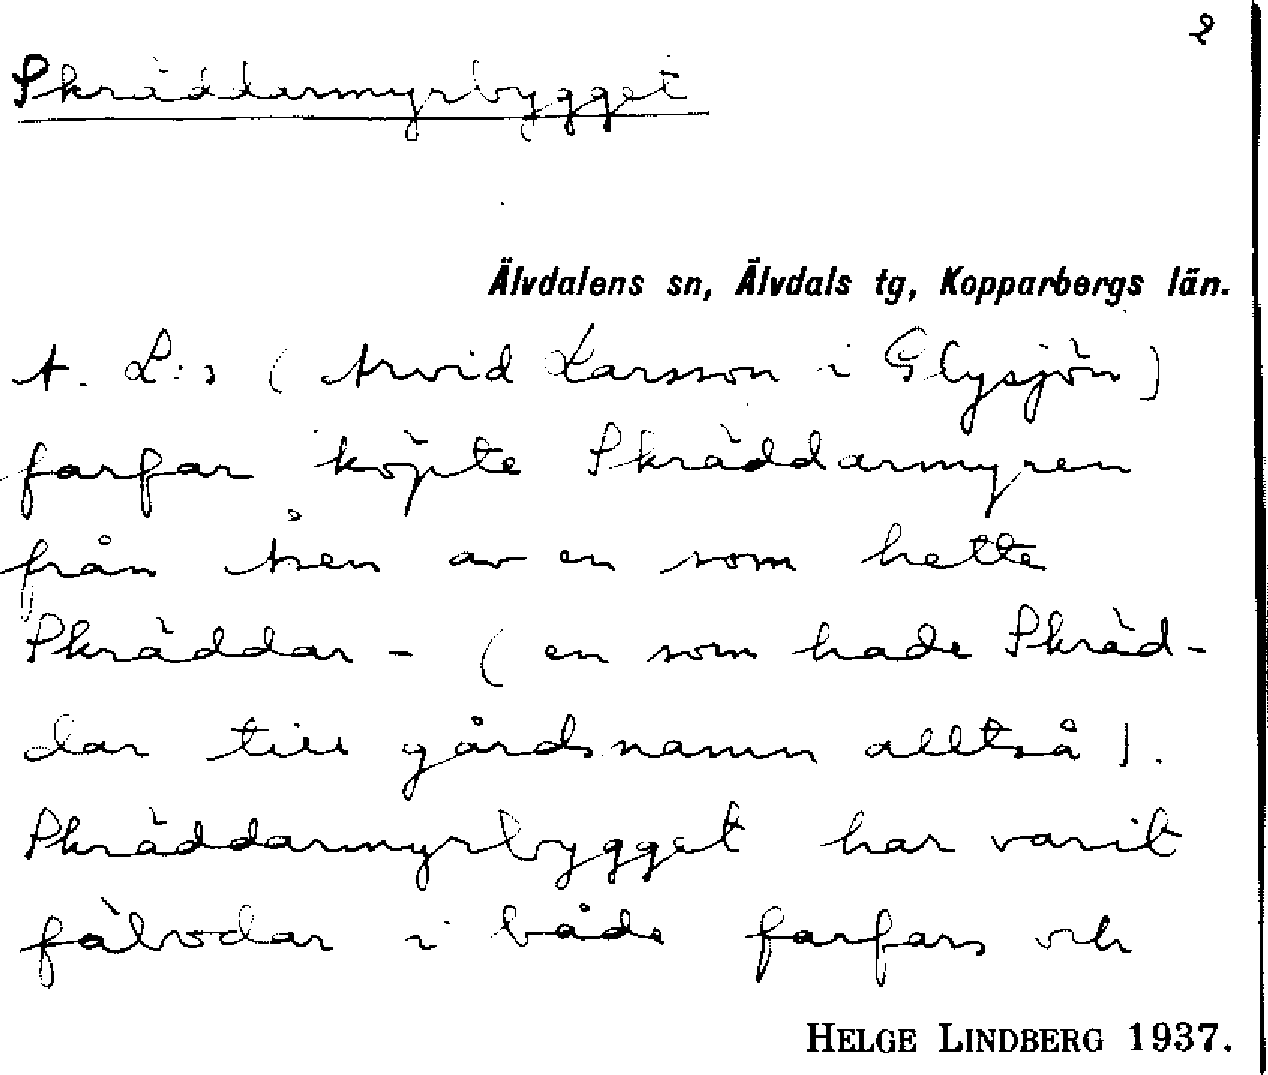 2
Skräddarmyrbygget
Älvdalens sn, Älvdals tg, Kopparbergs län.
A. L:s (Arvid Larsson i Glysjön)
farfar köpte Skräddarmyren
från Åsen av en som hette
Skräddar- (en som hade Skräd-
dar till gårdsnamn alltså).
Skräddarmyrbygget har varit
fäbodar i både farfars och
HELGE LINDBERG 1937.